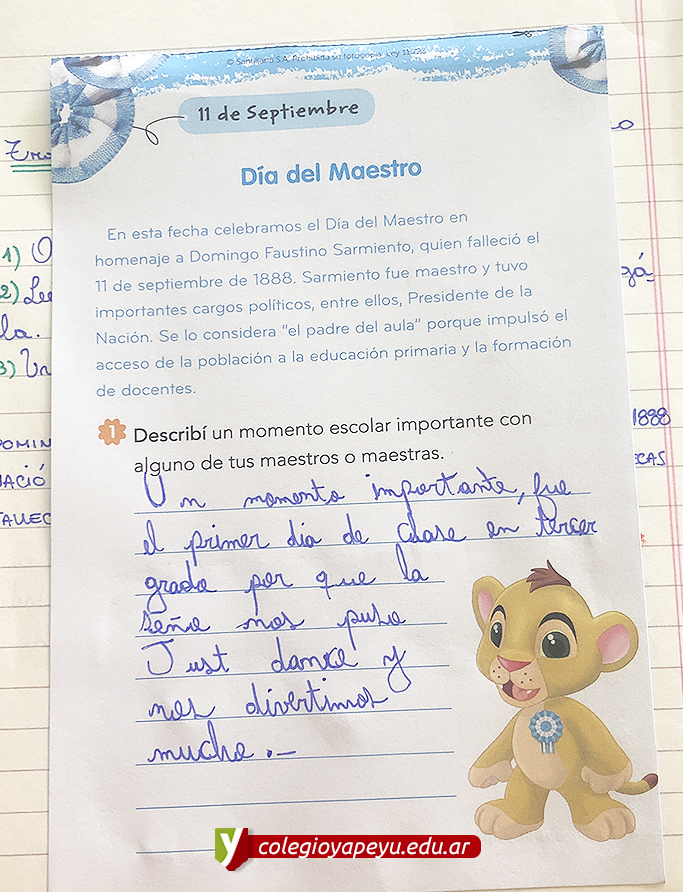 © Santillana S.A. Prohibida su fotocopia. Ley 11.723
11 de Septiembre
Día del Maestro
En esta fecha celebramos el Día del Maestro en
homenaje a Domingo Faustino Sarmiento, quien falleció el
11 de septiembre de 1888. Sarmiento fue maestro y tuvo
importantes cargos políticos, entre ellos, Presidente de la
Nación. Se lo considera "el padre del aula" porque impulsó el
acceso de la población a la educación primaria y la formación
de docentes.
1 Describí un momento escolar importante con
alguno de tus maestros o maestras.
Un momento importante, fue
el primer día de clase en tercer
grado por que la
seño nos puso
Just dance y
nos divertimos
mucho.-
1)
2)
la.
3)
1888
colegioyapeyu.edu.ar